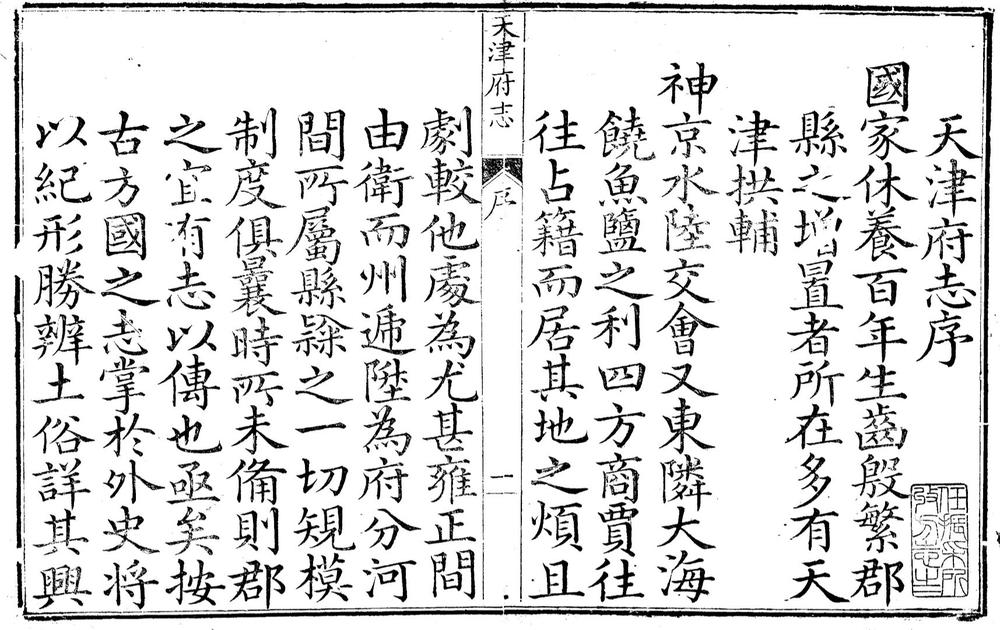 天津府志序
國家休養百年生齒殷繁郡
縣之增置者所在多有天
津拱輔
神京水陸交會又東隣大海
饒魚鹽之利四方商賈往
往占籍而居其地之煩且
天津府志
序
二
劇較他處為尤甚雍正間
由衛而州遞陞為府分河
間所屬縣隸之一切規模
制度俱曩時所未備則郡
之宜有志以傳也亟矣按
古方國之志掌於外史將
以紀形勝辨土俗詳其興
任振采所
收方志之